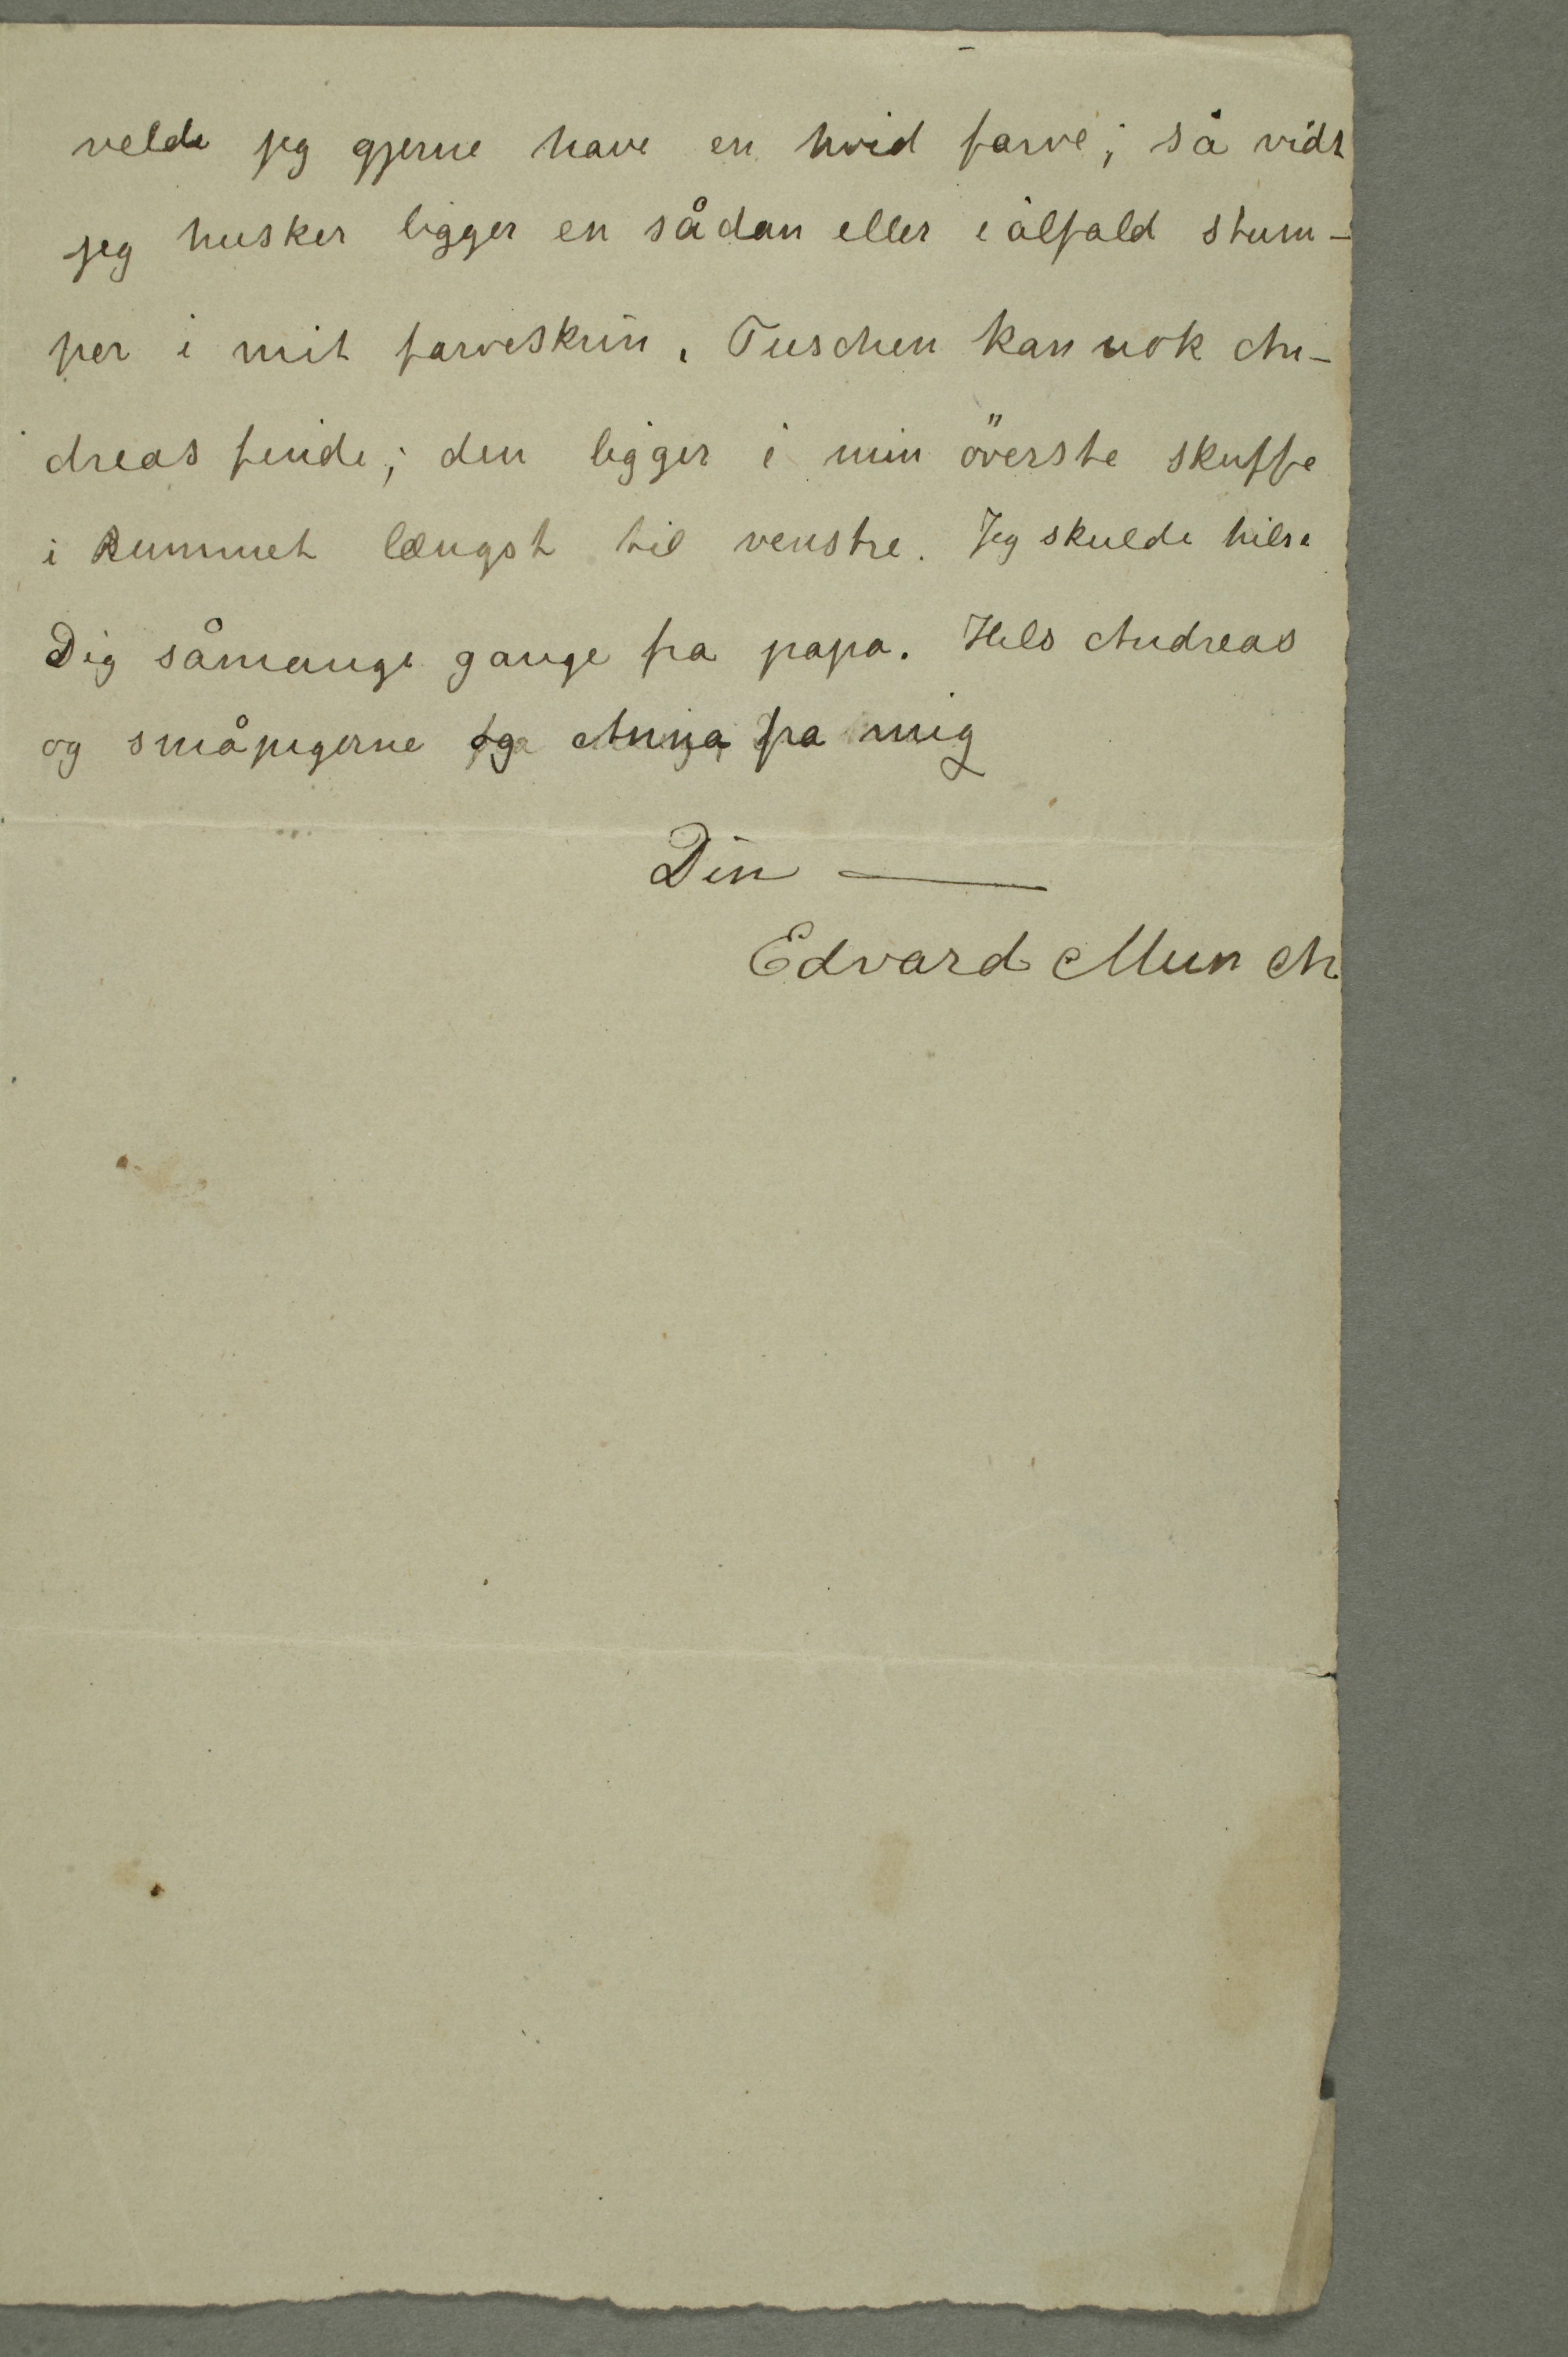 velde jeg gjerne have en hvid farve; så vidt
jeg husker ligger en sådan eller iålfald stum-
per i mit farveskrin. Tuschen kan nok An-
dreas finde; den ligger i min överste skuffe
i Rummet længst til venstre. Jeg skulde hilse
Dig såmange gange fra papa. Hils Andreas
og småpigerne og Anna fra mig
Din —
Edvard Munch